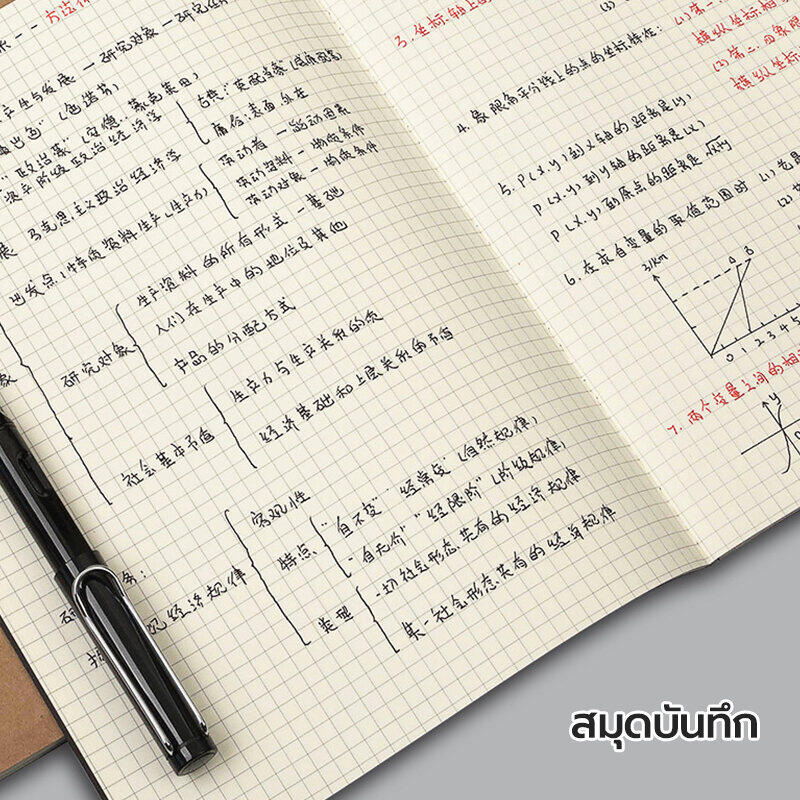 方法
产生与发展 — 研究对象 — 研究任
重出色"（色诺芬）
古典："英配法蒙（威廉配第）
庸俗：表面、外在
"政治蒙"（安德
资产阶级政治经济学
劳动者 — 能动因素
劳动资料 — 物质条件
劳动对象 — 物质条件
展 马克思主义政治经济学
出发点（物质资料生产（生产力）
生产资料的所有形式 — 基础
人们在生产中的地位及其他
产品的分配方式
研究对象
生产力与生产关系的矛
经济基础和上层关系的矛盾
社会基本矛盾
客观性
特点
"自不变" "经常变"（自然规律）
"自无阶" "经限阶"（阶级规律）
经济规律
类型
一切社会形态共有的经济规律
某一社会形态共有的经济规律
3.坐标轴上的
(1)第一
横纵坐标相
(2)第二、四象限
横纵坐标
4.象限角平分线上的点的坐标特性：
5. P(x,y)到x轴的距离是|y|
P(x,y)到y轴的距离是|x|
P(x,y)到原点的距离是
6.在求自变量的取值范围时
y/km
A B
0 1 2 3 4 5
7.两个变量之间的相
y
สมุดบันทึก